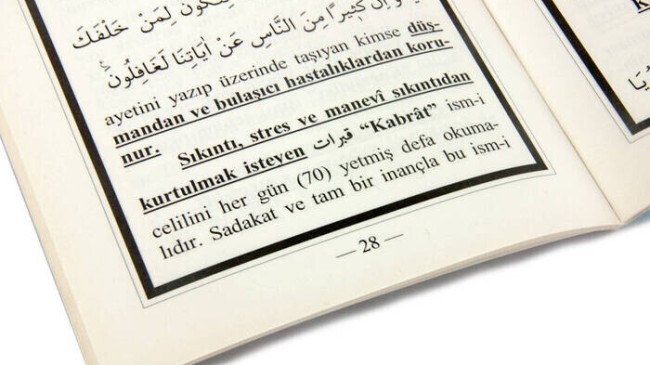 لِتَكُونَ لِمَنْ خَلْفَكَ
وَإِنَّ كَثِيرًا مِنَ النَّاسِ عَنْ اٰيَاتِنَا لَغَافِلُونَ
ayetini yazıp üzerinde taşıyan kimse düş-
mandan ve bulaşıcı hastalıklardan koru-
nur. Sıkıntı, stres ve manevî sıkıntıdan
kurtulmak isteyen قبرات “Kabrât” ism-i
celilini her gün (70) yetmiş defa okuma-
lıdır. Sadakat ve tam bir inançla bu ism-i
— 28 —